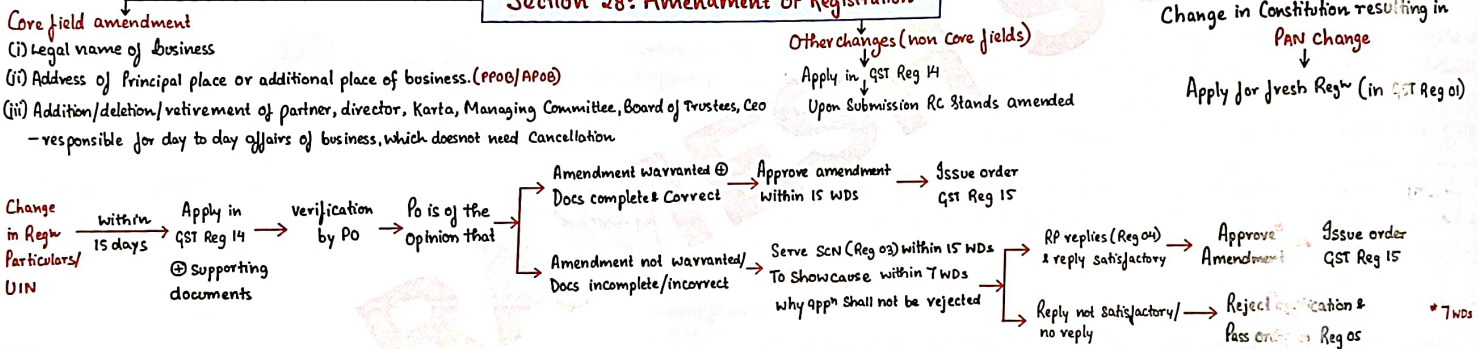 Section 28: Amendment of Registration
Core field amendment
(i) Legal name of business
(ii) Address of Principal place or additional place of business. (PPOB/APOB)
(iii) Addition/deletion/retirement of partner, director, Karta, Managing Committee, Board of Trustees, CEO
– responsible for day to day affairs of business, which doesnot need Cancellation
Other changes (non core fields)
Apply in GST Reg 14
Upon Submission RC Stands amended
Change in Constitution resulting in
PAN change
Apply for fresh Regⁿ (in GST Reg 01)
Change
in Regⁿ
Particulars/
UIN
within
15 days
Apply in
GST Reg 14
⊕ Supporting
documents
verification
by PO
Po is of the
opinion that
Amendment warranted ⊕
Docs complete & Correct
Approve amendment
within 15 WDs
Issue order
GST Reg 15
Amendment not warranted/
Docs incomplete/incorrect
Serve SCN (Reg 03) within 15 WDs
To Showcause within 7 WDs
why appⁿ Shall not be rejected
RP replies (Reg 04)
& reply satisfactory
Approve
Amendment
Issue order
GST Reg 15
Reply not satisfactory/
no reply
Reject &
Pass Reg 05
* 7 WDs